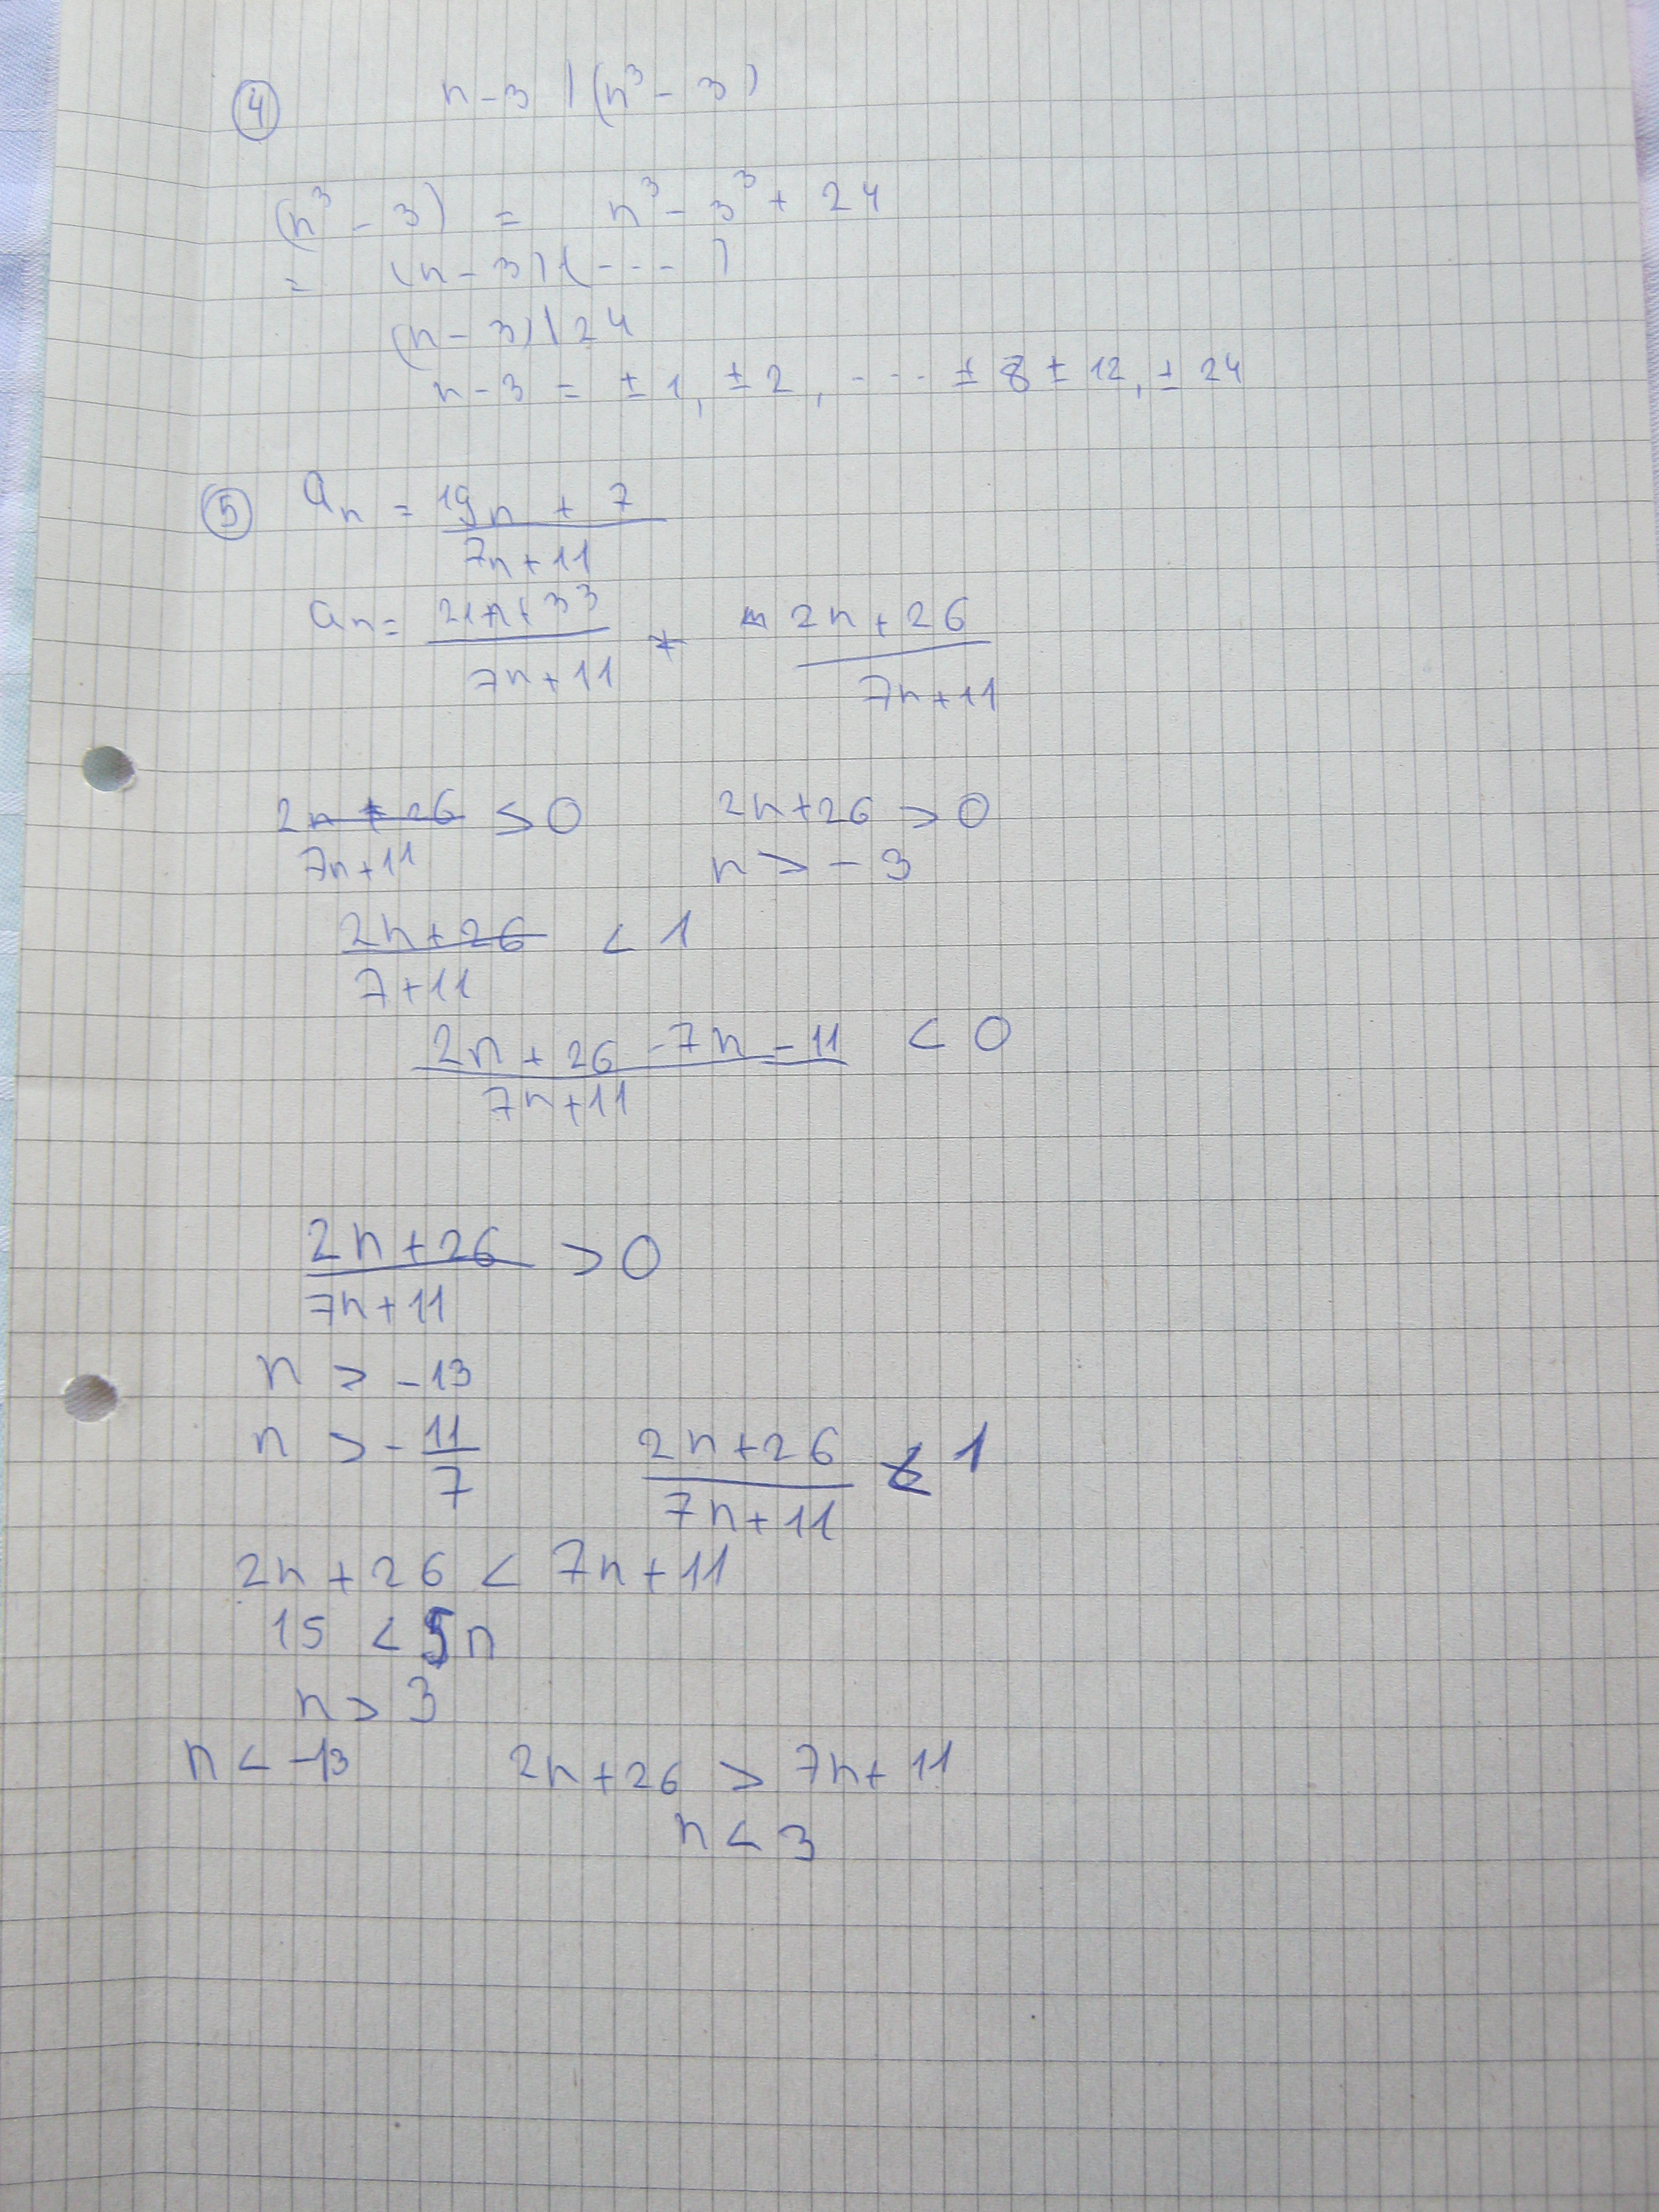 ④ n-3 | (n³ - 3)
(n³ - 3) = n³ - 3³ + 24
= (n-3)(----)
(n-3)|24
n-3 = ±1, ±2, ---- ±8 ±12, ±24
⑤ aₙ = 19n + 7
7n+11
aₙ = 21n+33
7n+11
2n+26
7n+11
2n + 26 < 0 2n+26 > 0
7n+11 n > -3
2n+26 < 1
7+11
2n + 26 -7n -11 < 0
7n+11
2n+26 > 0
7n+11
n > -13
n > -11/7
2n+26 < 1
7n+11
2n+26 < 7n+11
15 < 5n
n > 3
n < -13 2n+26 > 7n+11
n < 3